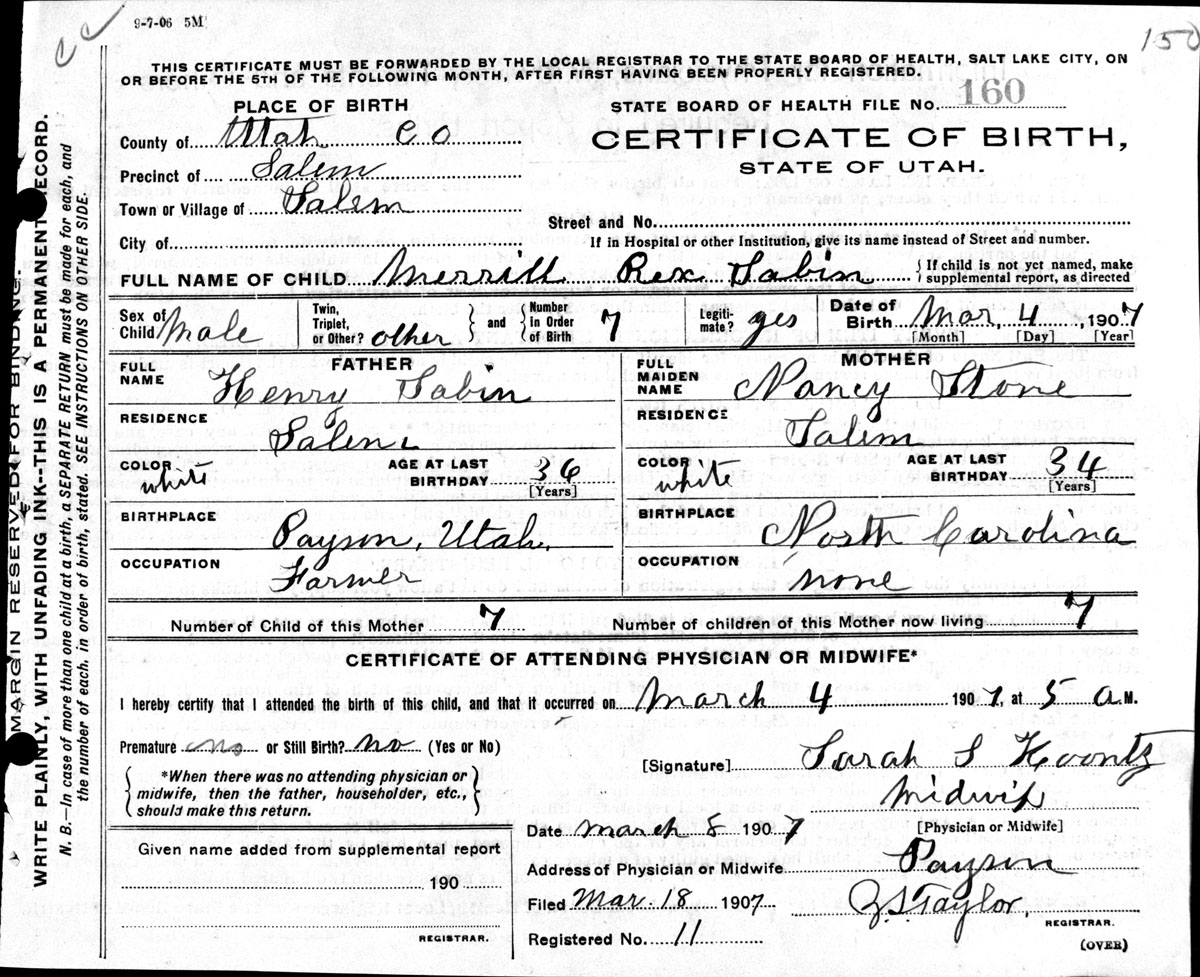 9-7-06 5M
cc
150
THIS CERTIFICATE MUST BE FORWARDED BY THE LOCAL REGISTRAR TO THE STATE BOARD OF HEALTH, SALT LAKE CITY, ON
OR BEFORE THE 5TH OF THE FOLLOWING MONTH, AFTER FIRST HAVING BEEN PROPERLY REGISTERED.
PLACE OF BIRTH
County of Utah Co
Precinct of Salem
Town or Village of Salem
City of
STATE BOARD OF HEALTH FILE NO. 160
CERTIFICATE OF BIRTH,
STATE OF UTAH.
Street and No.
If in Hospital or other Institution, give its name instead of Street and number.
FULL NAME OF CHILD Merrill Rex Sabin { If child is not yet named, make
supplemental report, as directed
Sex of Child Male Twin, Triplet, or Other? other } and { Number in Order of Birth 7 Legiti- mate? yes Date of Birth Mar, 4, 1907
[Month] [Day] [Year]
FATHER
FULL NAME Henry Sabin
RESIDENCE Salem
COLOR white AGE AT LAST BIRTHDAY 36
[Years]
BIRTHPLACE Payson, Utah.
OCCUPATION Farmer
MOTHER
FULL MAIDEN NAME Nancy Stone
RESIDENCE Salem
COLOR white AGE AT LAST BIRTHDAY 34
[Years]
BIRTHPLACE North Carolina
OCCUPATION none
Number of Child of this Mother 7 Number of children of this Mother now living 7
CERTIFICATE OF ATTENDING PHYSICIAN OR MIDWIFE*
I hereby certify that I attended the birth of this child, and that it occurred on March 4 1907, at 5 A.M.
Premature no or Still Birth? no (Yes or No)
{ *When there was no attending physician or
midwife, then the father, householder, etc.,
should make this return. }
[Signature] Sarah S Koontz
Midwife
[Physician or Midwife]
Date March 8 1907
Address of Physician or Midwife Payson
Filed Mar. 18 1907 Z S Taylor,
REGISTRAR.
Registered No. 11
(OVER)
Given name added from supplemental report
190
REGISTRAR.
MARGIN RESERVED FOR BINDING.
WRITE PLAINLY, WITH UNFADING INK-THIS IS A PERMANENT RECORD.
N. B.—In case of more than one child at a birth, a SEPARATE RETURN must be made for each, and
the number of each, in order of birth, stated. SEE INSTRUCTIONS ON OTHER SIDE.